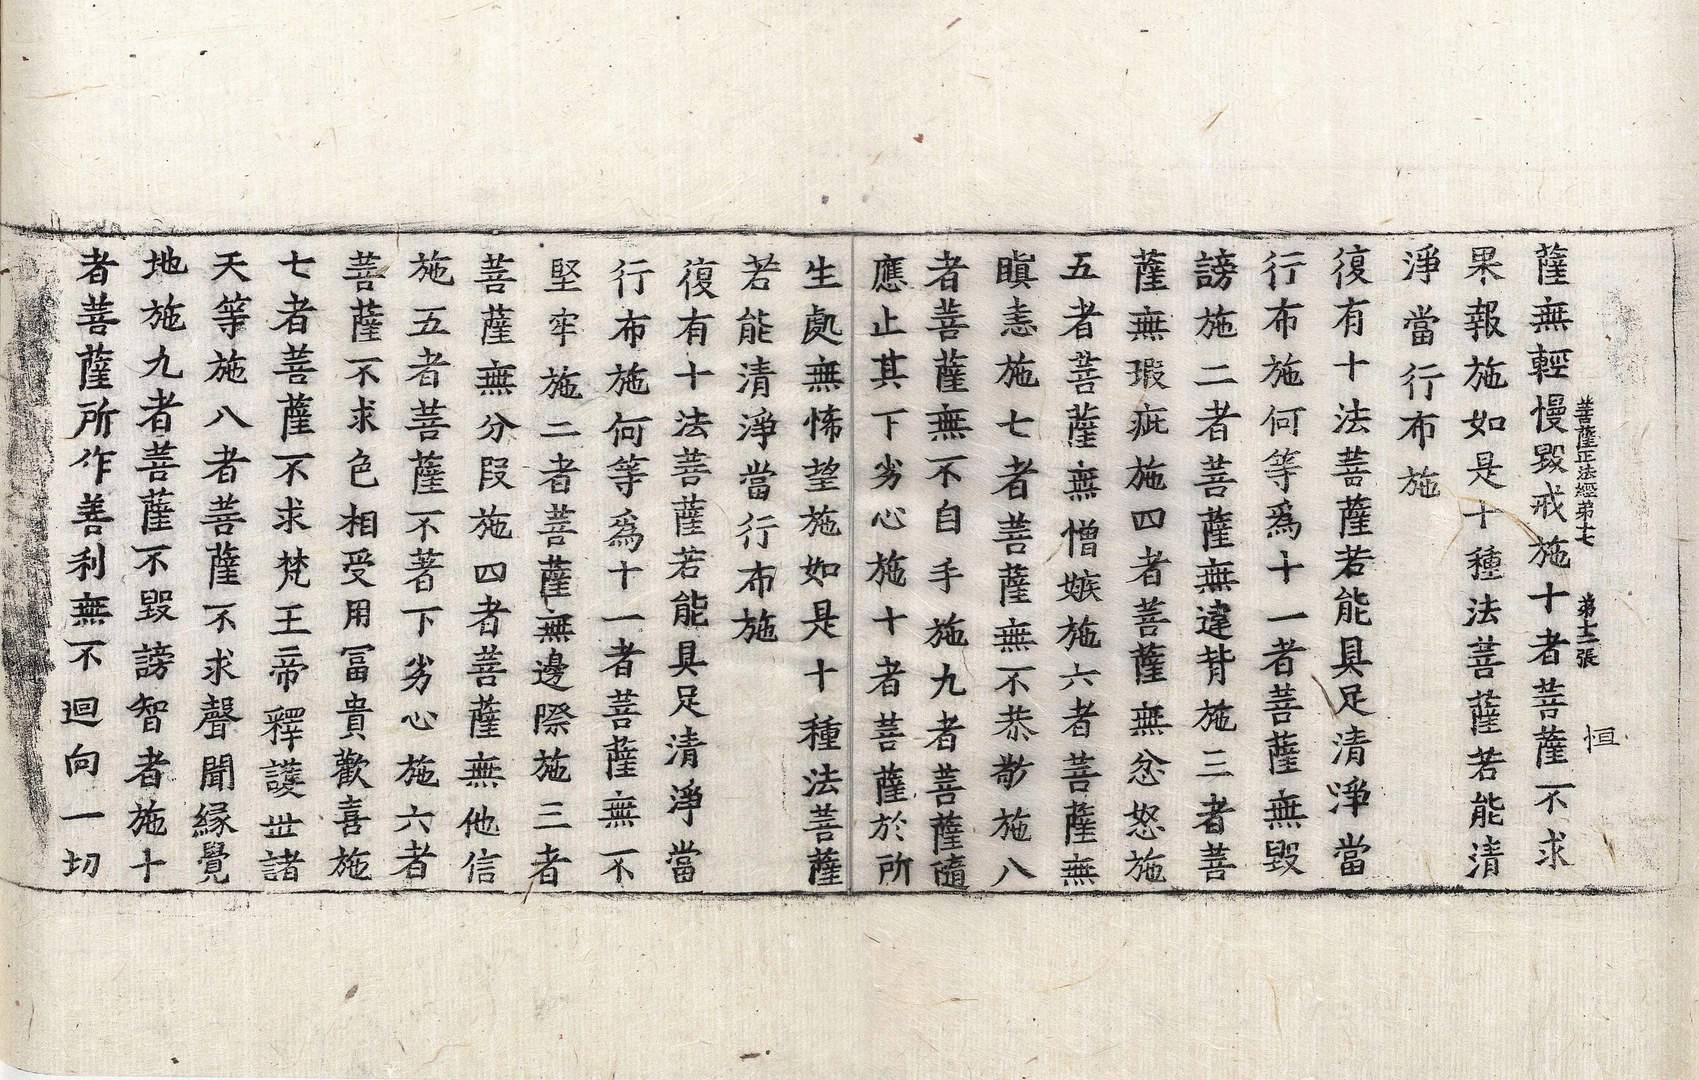 菩薩正法經弟七　弟十二張　恒
薩無輕慢毀戒施十者菩薩不求
果報施如是十種法菩薩若能清
淨當行布施
復有十法菩薩若能具足清淨當
行布施何等爲十一者菩薩無毀
謗施二者菩薩無違背施三者菩
薩無瑕疵施四者菩薩無忿怒施
五者菩薩無憎嫉施六者菩薩無
瞋恚施七者菩薩無不恭敬施八
者菩薩無不自手施九者菩薩隨
應止其下劣心施十者菩薩於所
生處無悕望施如是十種法菩薩
若能清淨當行布施
復有十法菩薩若能具足清淨當
行布施何等爲十一者菩薩無不
堅牢施二者菩薩無邊際施三者
菩薩無分段施四者菩薩無他信
施五者菩薩不著下劣心施六者
菩薩不求色相受用冨貴歡喜施
七者菩薩不求梵王帝釋護世諸
天等施八者菩薩不求聲聞緣覺
地施九者菩薩不毀謗智者施十
者菩薩所作善利無不迴向一切